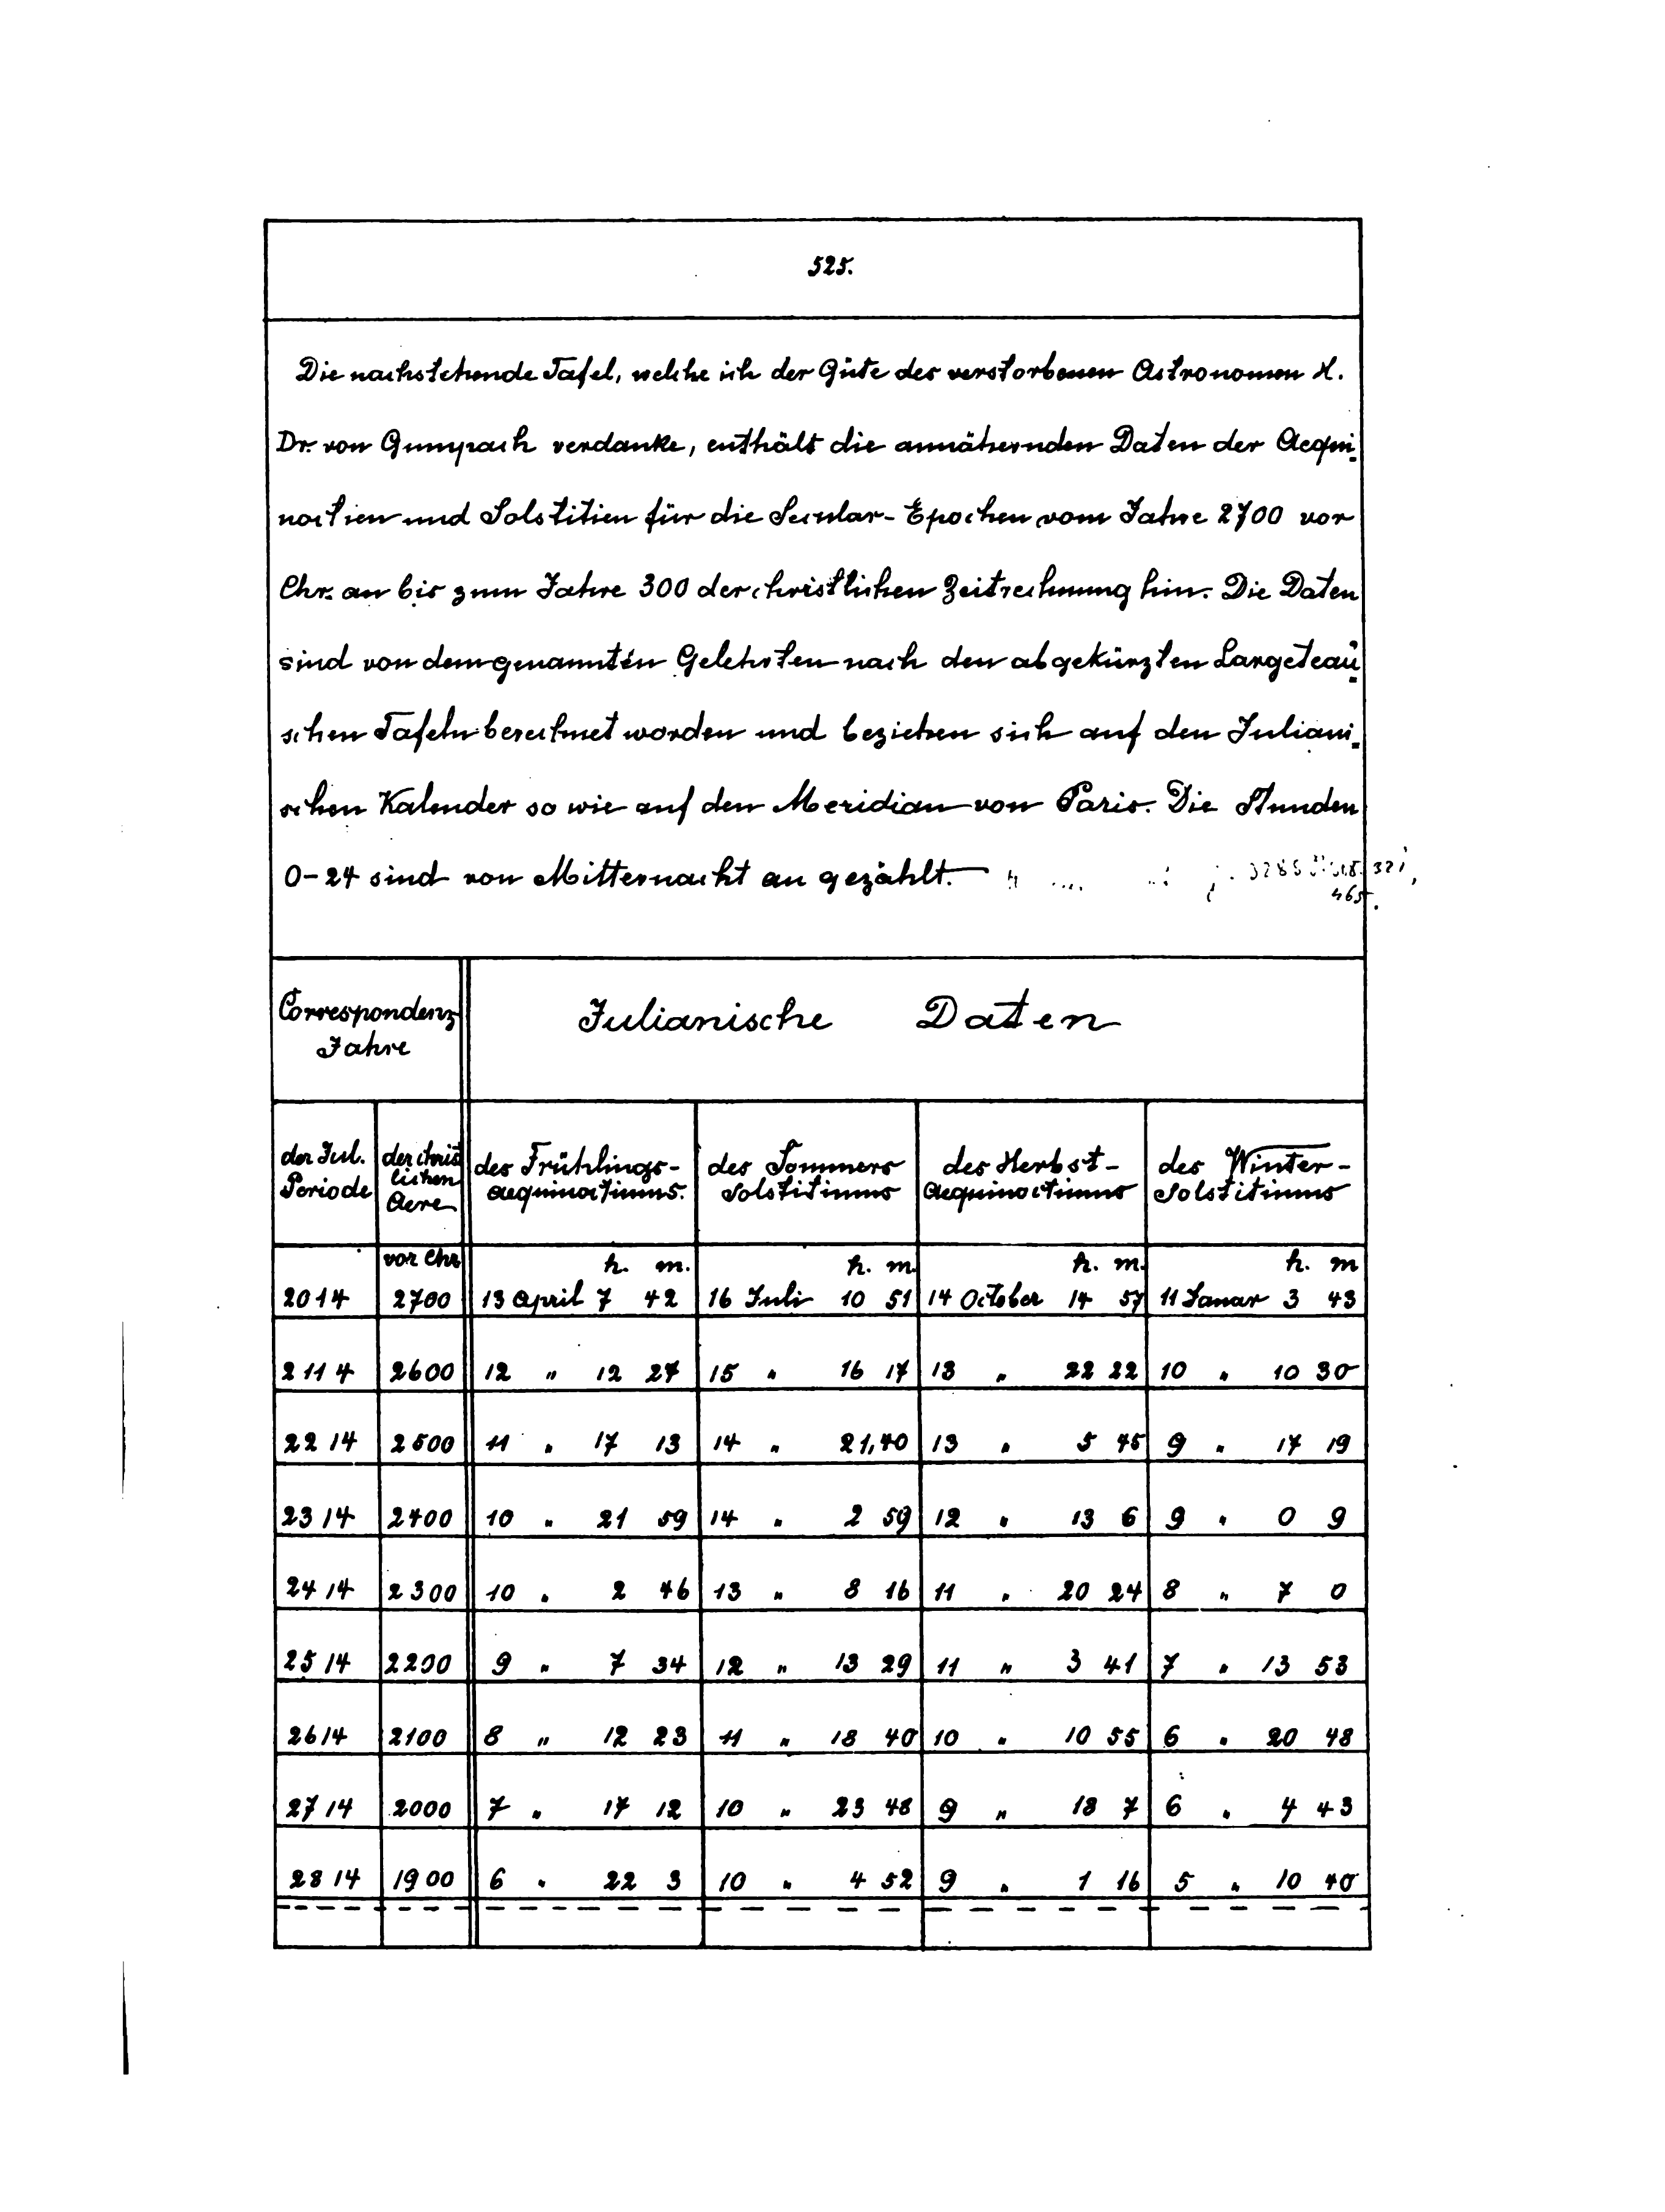 525.
Die nachstehende Tafel, welche ich der Güte des verstorbenen Astronomen H.
Dr. von Gumpach verdanke, enthält die annähernden Daten der Aequi-
noctien und Solstitien für die Secular-Epochen vom Jahre 2700 vor
Chr. an bis zum Jahre 300 der christlichen Zeitrechnung hin. Die Daten
sind von dem genannten Gelehrten nach den abgekürzten Largeteaui-
schen Tafeln berechnet worden und beziehen sich auf den Juliani-
schen Kalender so wie auf den Meridian von Paris. Die Stunden
0-24 sind von Mitternacht an gezählt.
465.
Correspondenz Julianische Daten
Jahre
der Jul. der christ des Frühlings- des Sommers des Herbst- des Winter-
Periode lichen aequinoctiums. Solstitiums Aequinoctiums Solstitiums
Aere
vor Chr. h. m. h. m. h. m. h. m
2014 2700 13 April 7 42 16 Juli 10 51 14 October 14 57 11 Januar 3 43
2114 2600 12 " 12 27 15 " 16 17 13 " 22 22 10 " 10 30
2214 2500 11 " 17 13 14 " 21,40 13 " 5 45 9 " 17 19
2314 2400 10 " 21 59 14 " 2 59 12 " 13 6 9 " 0 9
2414 2300 10 " 2 46 13 " 8 16 11 " 20 24 8 " 7 0
2514 2200 9 " 7 34 12 " 13 29 11 " 3 41 7 " 13 53
2614 2100 8 " 12 23 11 " 18 40 10 " 10 55 6 " 20 48
2714 2000 7 " 17 12 10 " 23 48 9 " 18 7 6 " 4 43
2814 1900 6 " 22 3 10 " 4 52 9 " 1 16 5 " 10 40